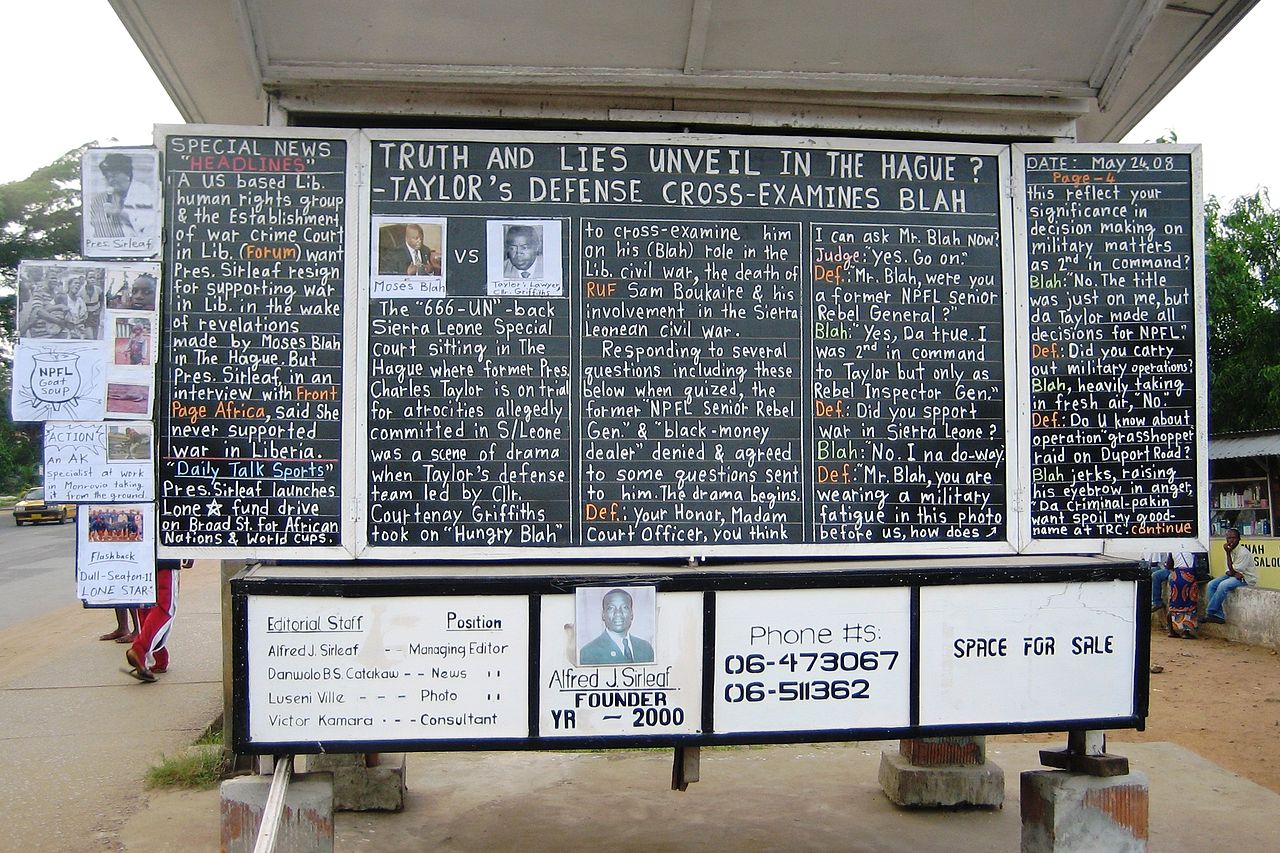 Pres. Sirleaf
NPFL
Goat
SOUP
"ACTION"
An AK
specialist at work
in Monrovia taking
it from the ground
Flashback
Dull-Seaton-II
LONE STAR"
SPECIAL NEWS
"HEADLINES"
A US based Lib.
human rights group
& the Establishment
of war crime Court
in Lib. (Forum) want
Pres. Sirleaf resign
for supporting war
in Lib. in the wake
of revelations
made by Moses Blah
in The Hague. But
Pres. Sirleaf, in an
interview with Front
Page Africa, said she
never supported
war in Liberia.
"Daily Talk Sports"
Pres. Sirleaf launches
Lone ☆ fund drive
on Broad St. for African
Nations & World cups.
TRUTH AND LIES UNVEIL IN THE HAGUE ?
-TAYLOR'S DEFENSE CROSS-EXAMINES BLAH
Moses Blah
VS
Taylor's Lawyer
Cllr. Griffiths
The "666-UN"-back
Sierra Leone Special
court sitting in The
Hague where former Pres.
Charles Taylor is on trial
for atrocities allegedly
committed in S/Leone
was a scene of drama
when Taylor's defense
team led by Cllr.
Courtenay Griffiths
took on "Hungry Blah"
to cross-examine him
on his (Blah) role in the
Lib. civil war, the death of
RUF Sam Boukaire & his
involvement in the Sierra
Leonean civil war.
Responding to several
questions including these
below when quized, the
former "NPFL Senior Rebel
Gen." & "black-money
dealer" denied & agreed
to some questions sent
to him. The drama begins.
Def.: Your Honor, Madam
Court Officer, you think
I can ask Mr. Blah now?
Judge: "yes. Go on."
Def: "Mr. Blah, were you
a former NPFL senior
Rebel General ?"
Blah: "Yes, Da true. I
was 2nd in command
to Taylor but only as
Rebel Inspector Gen."
Def.: Did you spport
war in Sierra Leone ?
Blah: "No. I na do-way.
Def: "Mr. Blah, you are
wearing a military
fatigue in this photo
before us, how does
DATE: May 24, 08
Page-4
this reflect your
significance in
decision making on
military matters
as 2nd in command?
Blah: "No. The title
was just on me, but
da Taylor made all
decisions for NPFL."
Def.: Did you carry
out military operations?
Blah, heavily taking
in fresh air, "No."
Def.: Do U know about
operation "grasshopper
raid on Duport Road ?
Blah jerks, raising
his eyebrow in anger,
"Da criminal-pakin
want spoil my good-
name at TRC. continue
Editorial Staff Position
Alfred J. Sirleaf -- Managing Editor
Danwolo B.S. Catakaw -- News "
Luseni Ville --- Photo "
Victor Kamara --- Consultant
Alfred J. Sirleaf
FOUNDER
YR - 2000
Phone #s:
06-473067
06-511362
SPACE FOR SALE